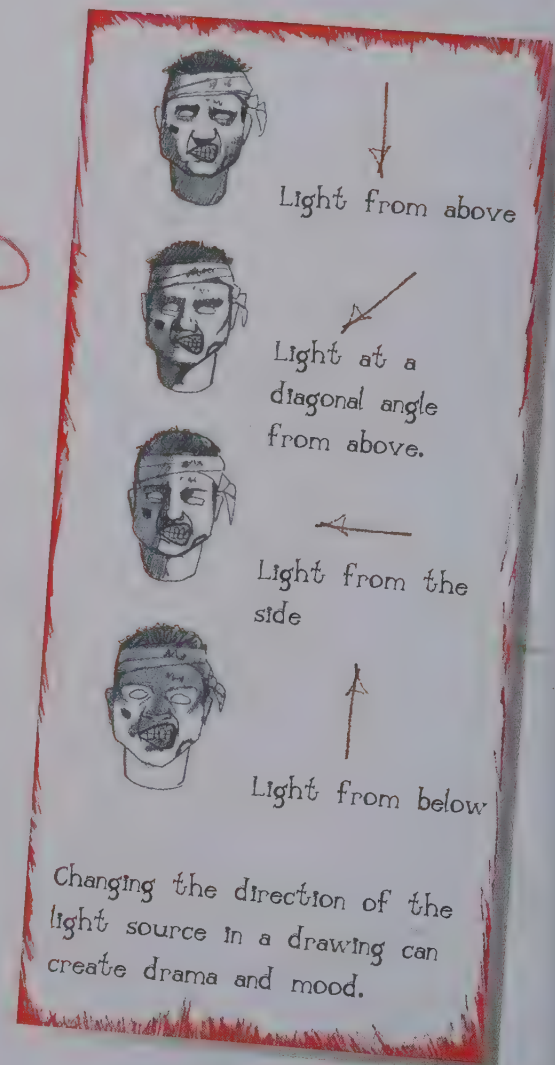 Light from above
Light at a
diagonal angle
from above.
Light from the
side
Light from below
Changing the direction of the
light source in a drawing can
create drama and mood.